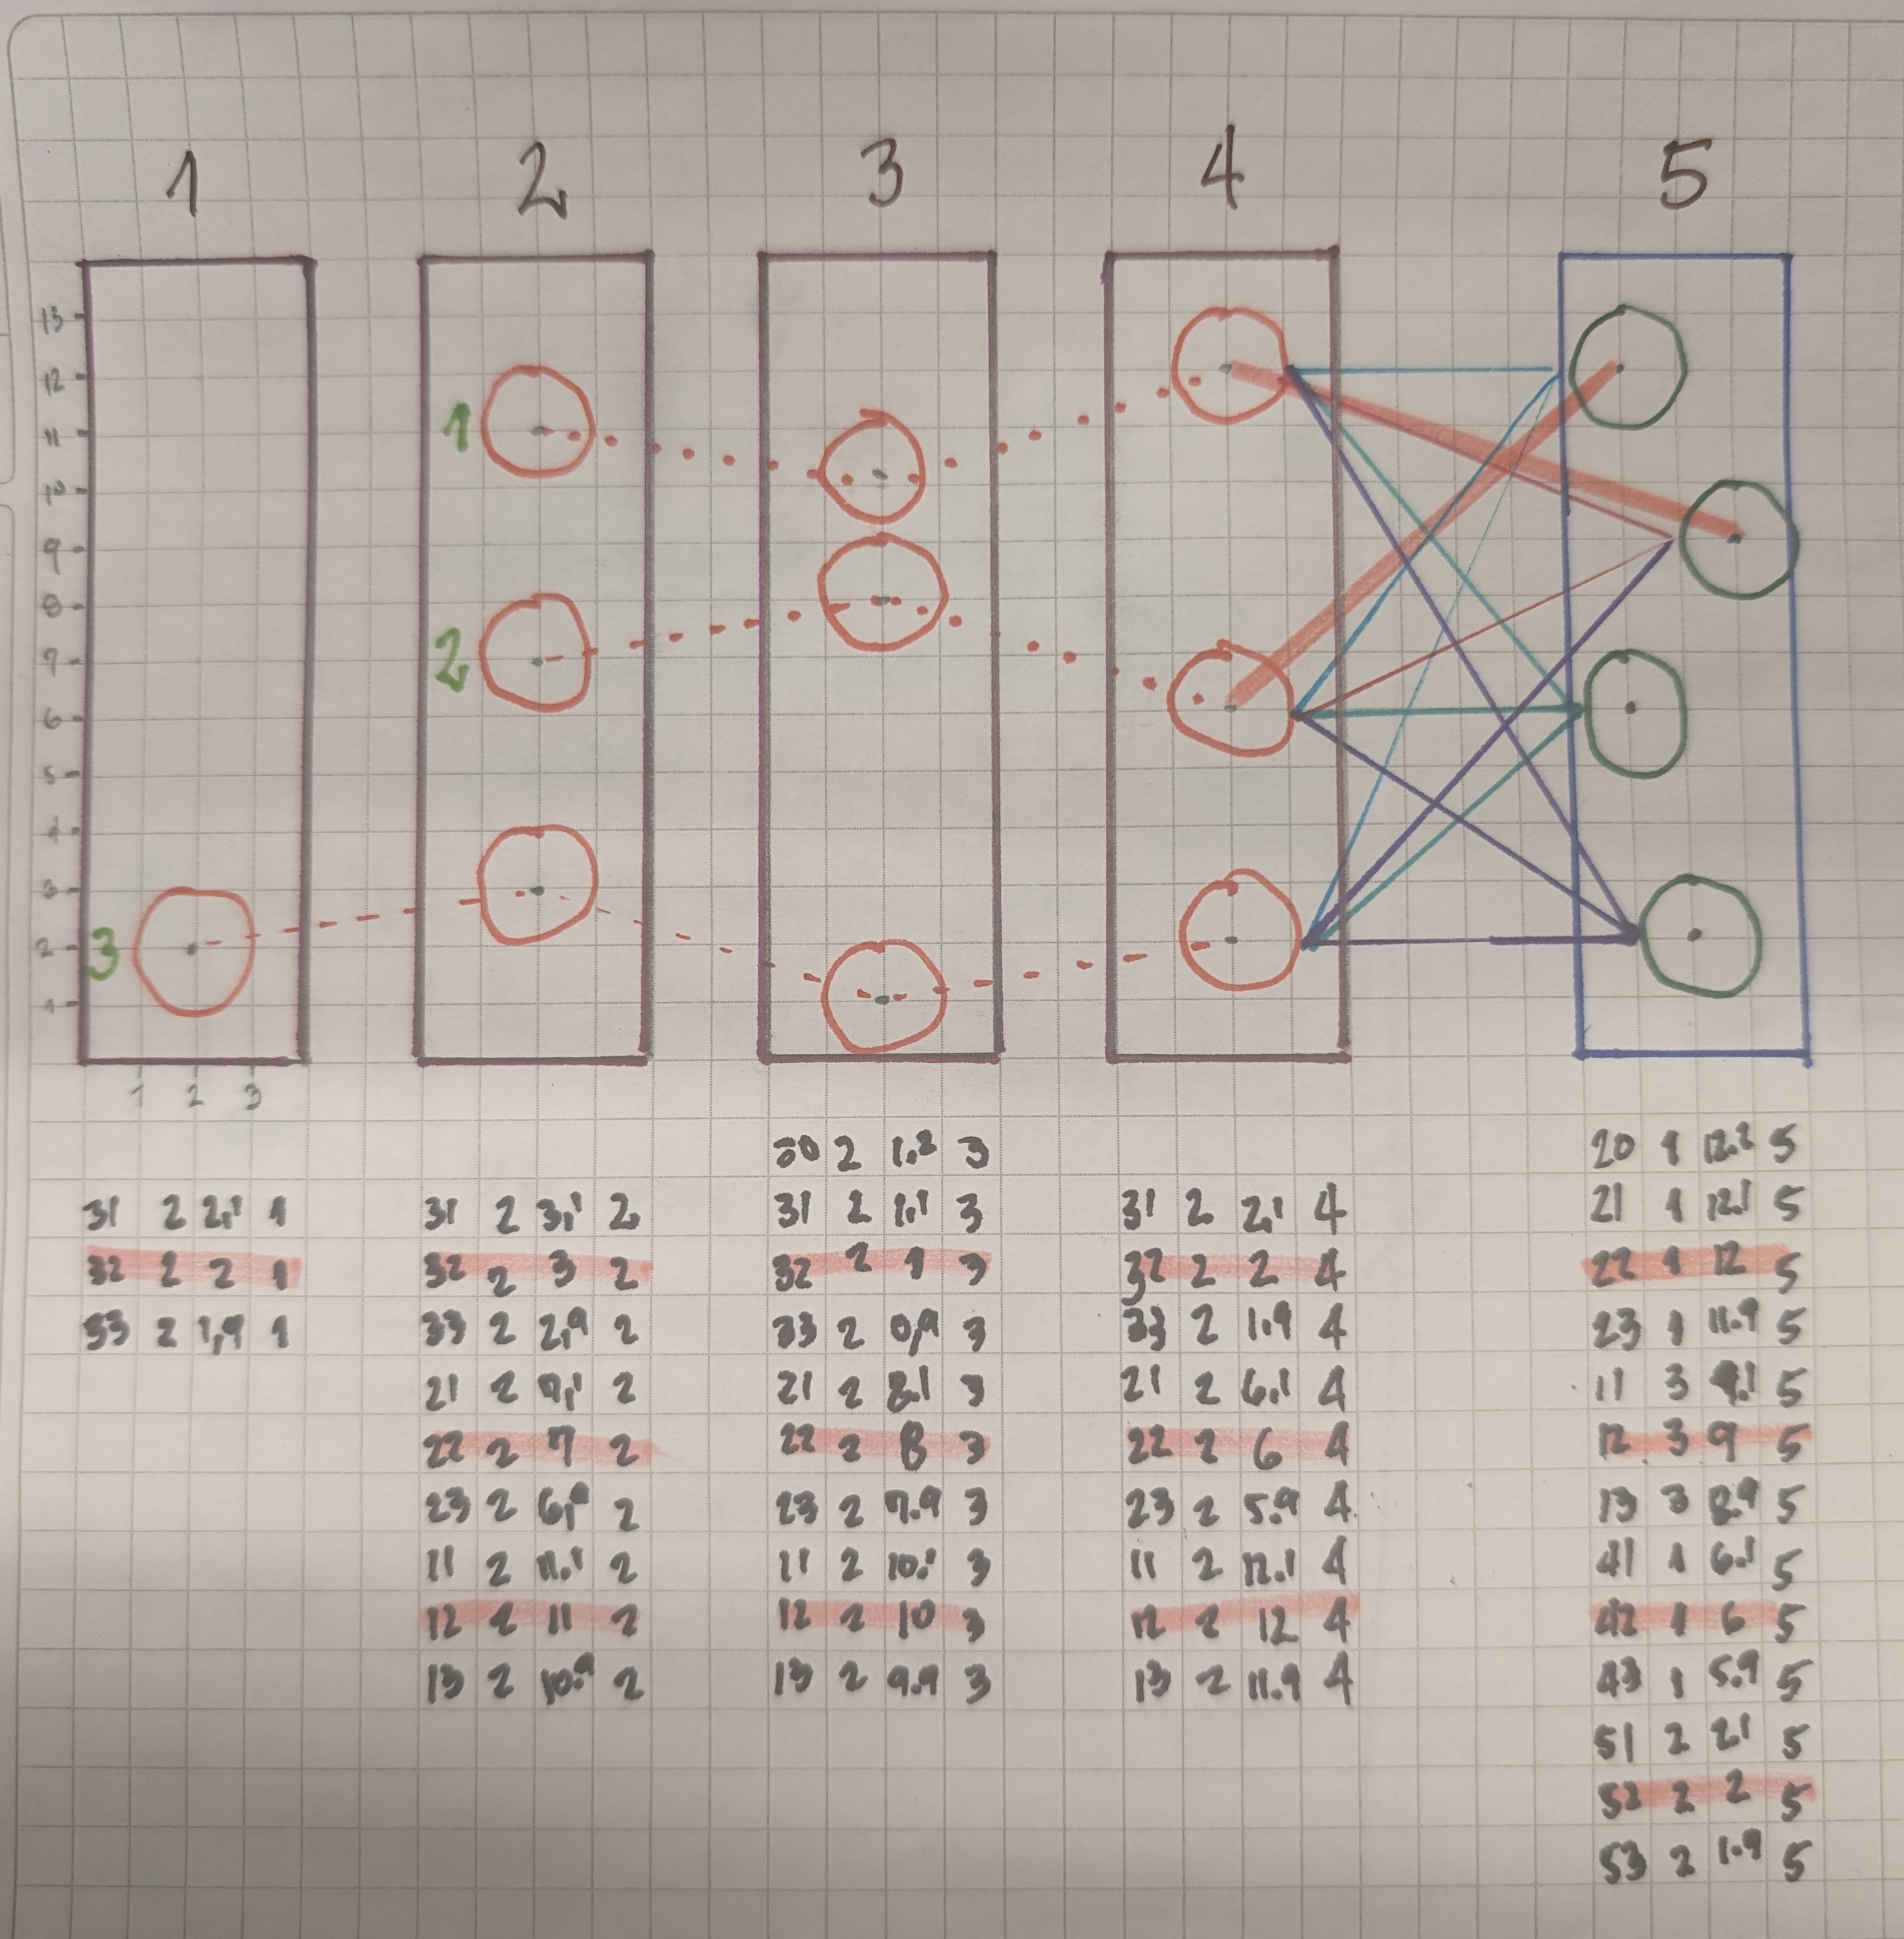 1 2 3 4 5
13
12
11
10
9
8
7
6
5
4
3
2
1
1
2
3
1 2 3
31 2 2,1 1
32 2 2 1
33 2 1,9 1
31 2 3,1 2
32 2 3 2
33 2 2,9 2
21 2 7,1 2
22 2 7 2
23 2 6,9 2
11 2 11.1 2
12 2 11 2
13 2 10.9 2
30 2 1.2 3
31 2 1.1 3
32 2 1 3
33 2 0,9 3
21 2 8.1 3
22 2 8 3
23 2 7.9 3
11 2 10.1 3
12 2 10 3
13 2 9.9 3
31 2 2,1 4
32 2 2 4
33 2 1.9 4
21 2 6.1 4
22 2 6 4
23 2 5.9 4
11 2 12.1 4
12 2 12 4
13 2 11.9 4
20 1 12.2 5
21 1 12.1 5
22 1 12 5
23 1 11.9 5
11 3 9.1 5
12 3 9 5
13 3 8.9 5
41 1 6.1 5
42 1 6 5
43 1 5.9 5
51 2 2.1 5
52 2 2 5
53 2 1.9 5